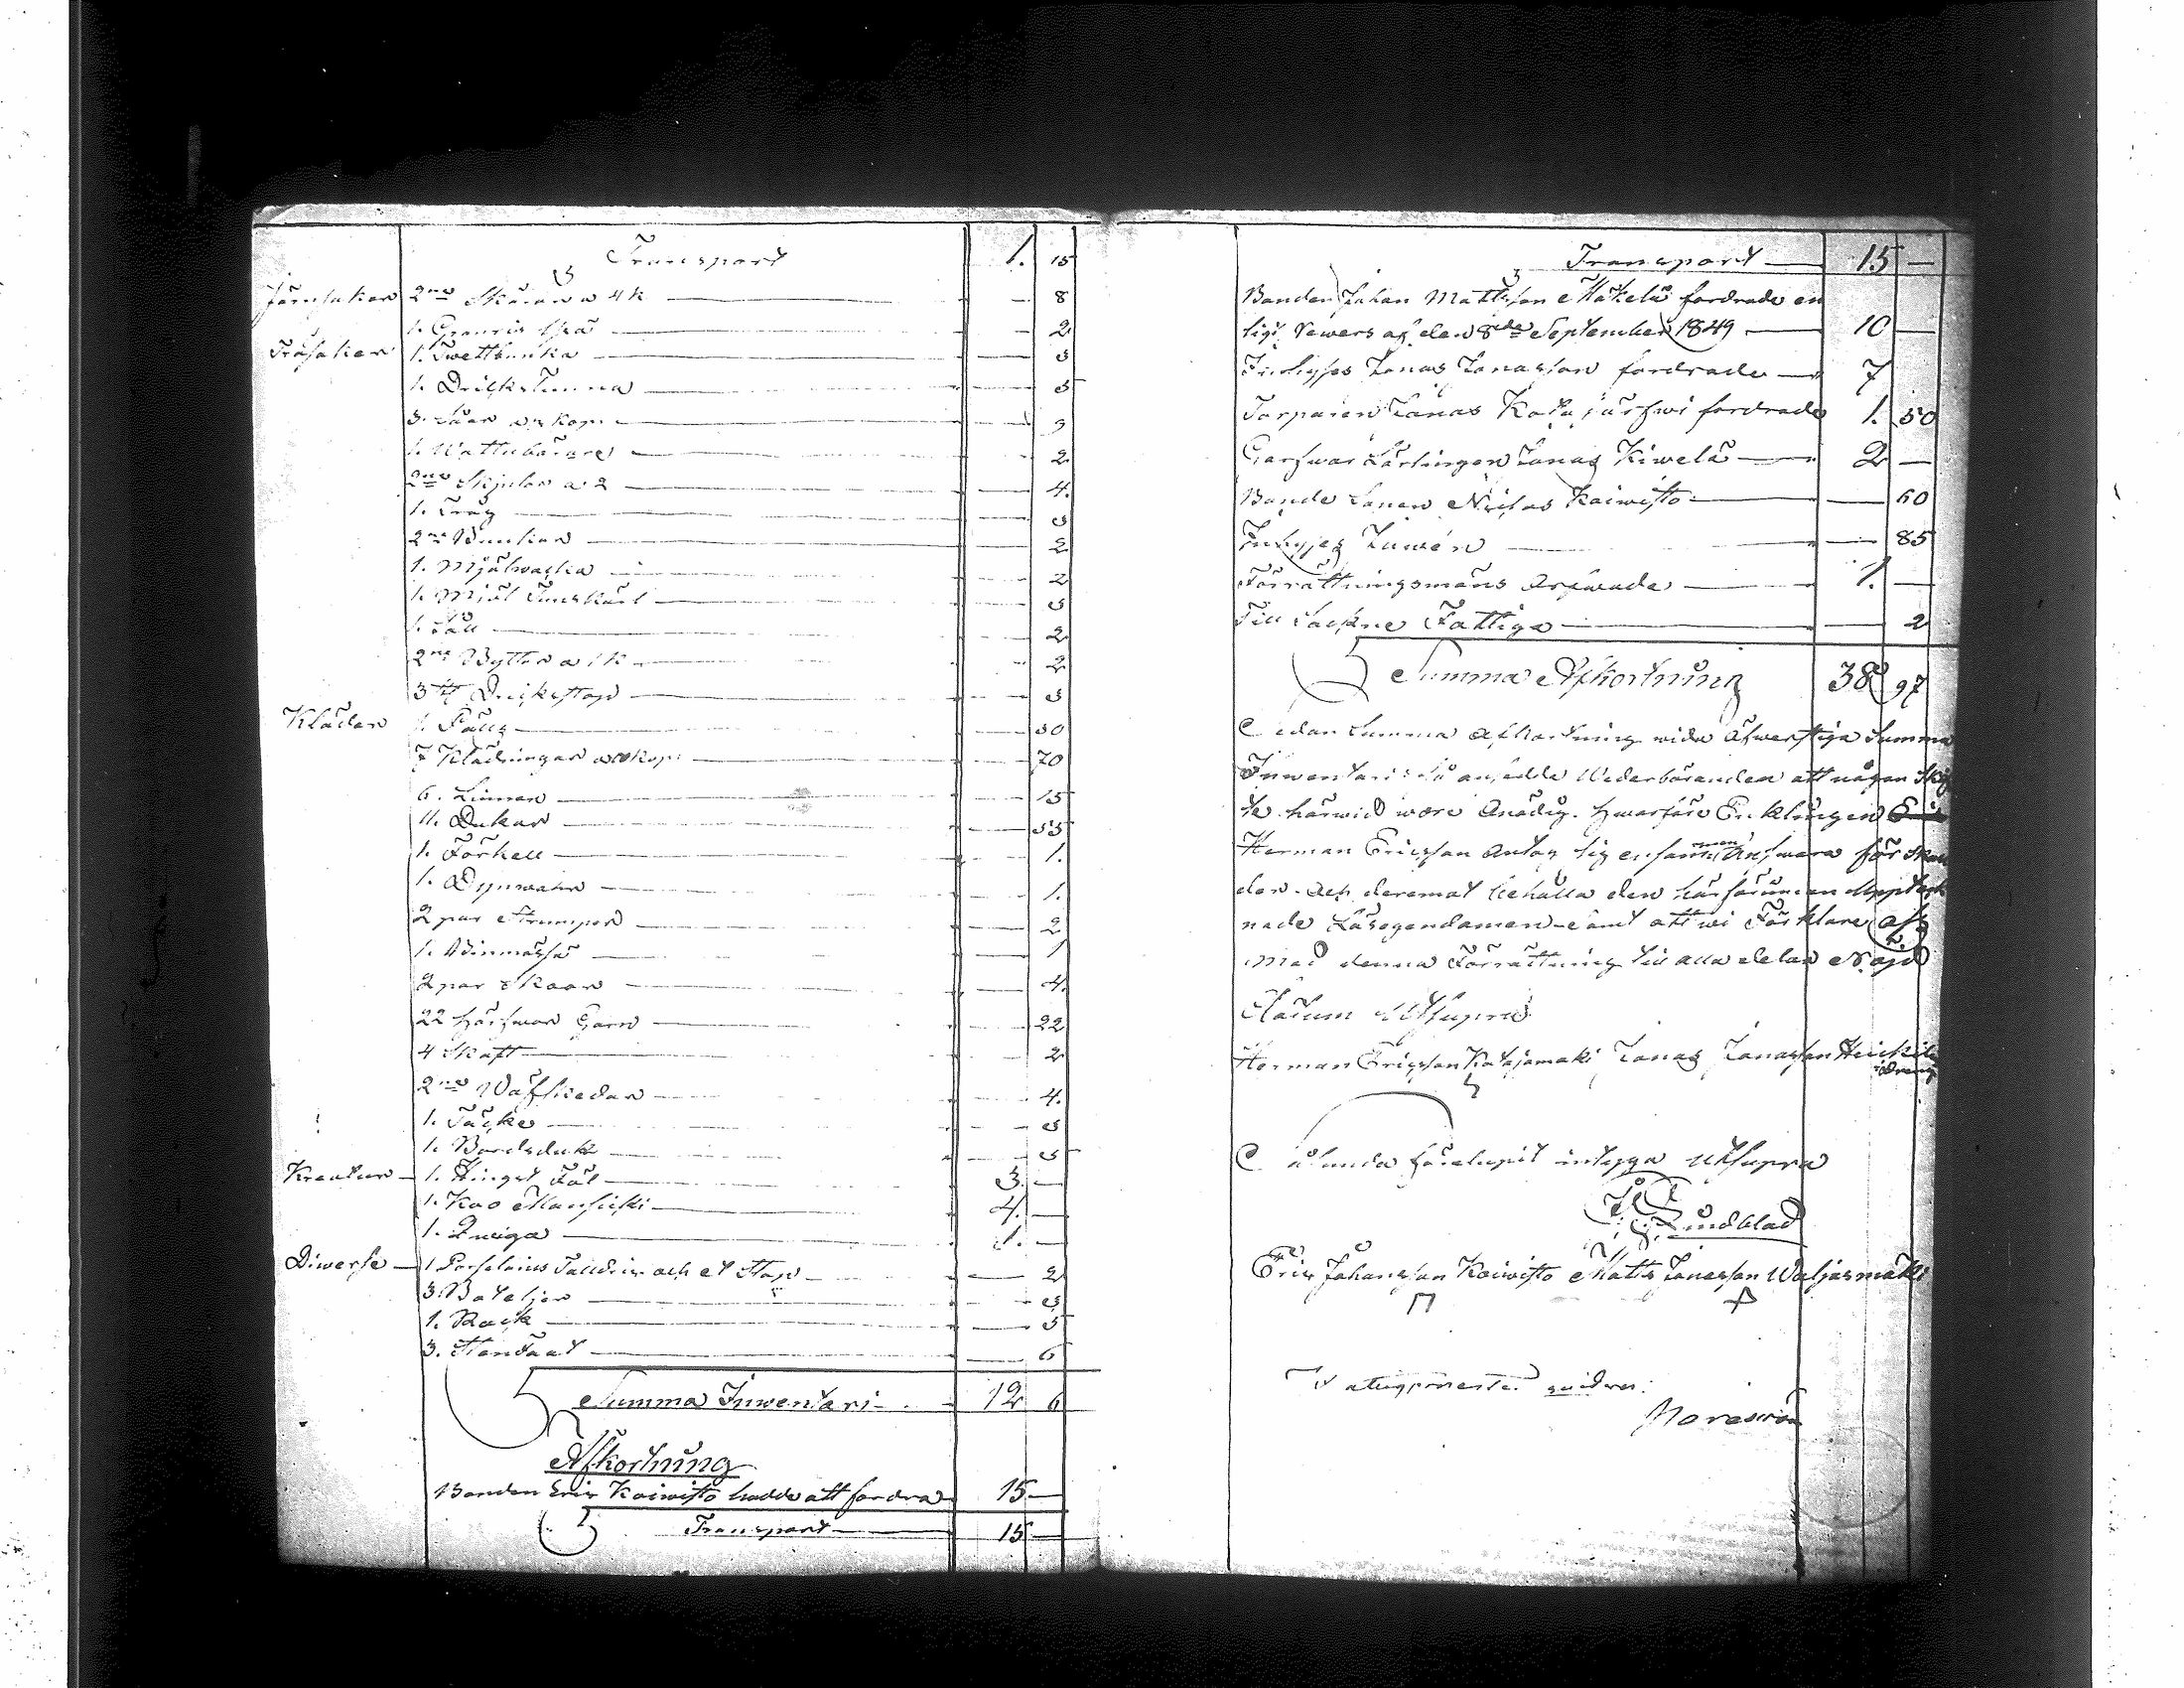 Transport 1. 15
Järnsaker 2ne Skäror a 4 k — 8
1. — 2
Träsaker 1. Twettbunka — 3
1. Drickstunna — 5
3. Såar a 3 kop — 9
1. Wattubärare — 2
2ne Skjular a 2 — 4.
1. Tråg — 3
2ne Bunkar — 2
1. Mjölwacka — 2
1. Mjöl — 3
1. Såll — 2
2ne Byttor a 1 k — 2
3 st Dricksstop — 3
Kläder 1. Fäll — 30
7 Klädningar a 10 kop: — 70
6. Linnen — 15
11. Dukar — 55
1. Förkell — 1.
1. Dynwahr — 1.
2 par Strumpor — 2
1. Winmössa — 1
2 par Skoor — 4.
22 Härfwor Garn — 22
4 Skaft — 2
2ne Wäfskedar — 4.
1. Täcke — 3
1. Bordsduk — 5
Kreatur 1. Hingst Föl 3. —
1. Koo Mansicki 4. —
1. Quiga 1. —
Diwerse 1 Porselains Talldrik och et Stop — 2
3. Boteljer — 3
1. Rock — 5
3. — 6
Summa Inwentari 12 6
Afkortning
Bonden Eric Koiwisto hadde att fordra 15 —
Transport 15 —
Transport 15 —
Bonden Johan Mattsson Mäkelä fordrade en
ligt Rewers af den 8de September 1849 10 —
Inhyses Jonas Jonasson fordrade 7
Torparen Jonas Katajärfwi fordrade 1. 50
Garfwar Lärlingen Jonas Kiwelä 2 —
Bonde Sonen Niclas Koiwisto — 60
Inhyses — 85
Förrättningsmans Arfwode 1. —
Till Sockne Fattiga — 2
Summa Afkortning 38 97
Sedan Summa Afkortning wida Öfwerstiga Summa
Inwentari: så ansedde Wederböranden att någon Skif
te härwid wore Onödig. Hwarföre Enklingen
Herman Ericsson Antog sig ensamm Answara för Skul
der. och deremot behålla den härförinnan Uppteck
nade Lösegendomen. samt att wi Förklare oss
med denna Förrättning till alla delar Nöjd
Datum Utsupra
Herman Ericsson Katajamäki Jonas Jonasson Heickilä
dräng
Sålunda förelupit intyga Utsupra
Lindblad
Eric Johansson Koiwisto Matts Jonasson Waljasmäki